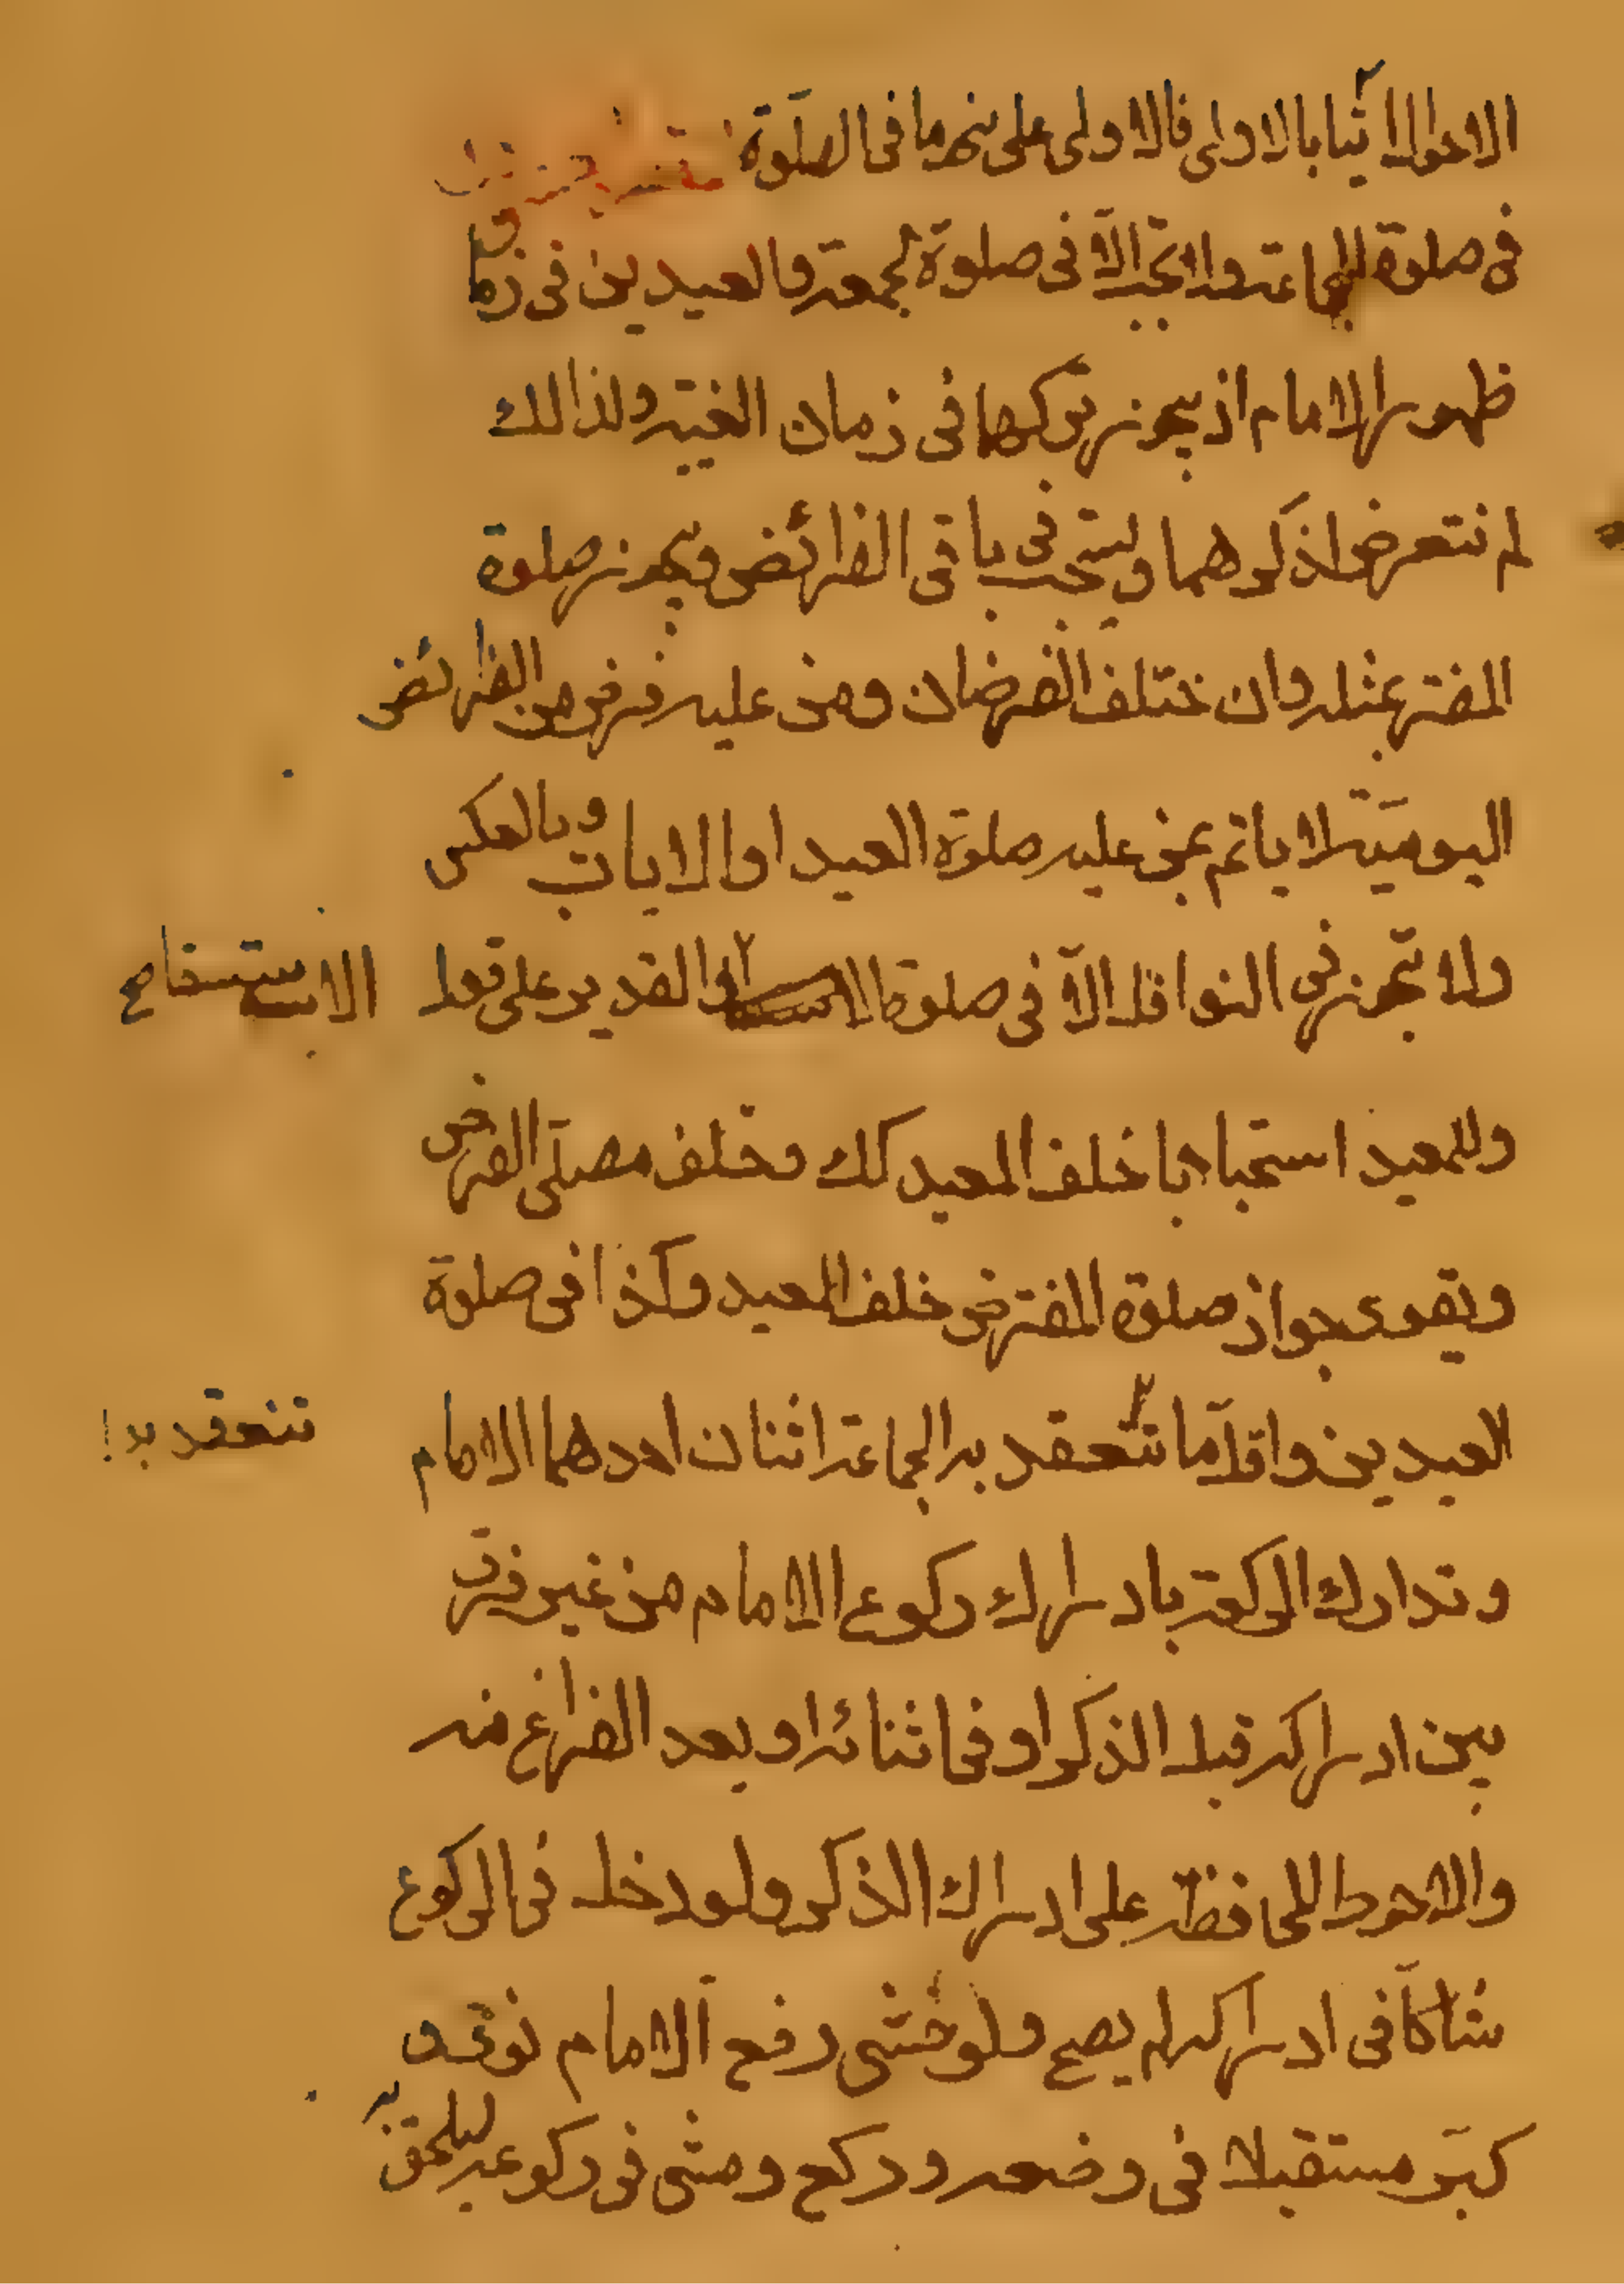 الاحوال اثيابا بالاولى فالاولى على نهج ما فى الصلوة
فى صلوة الجماعة ولا تجب الّا فى صلوة الجمعة والعيدين فى زمان
ظهور الامام اذ يجوز تركها فى زمان الغيبة ولذالك
لم نتعرض لذكرهما ويستحب فى باقى الفرائض ويجوز صلوة
المفترض بمثله وان ختلف الفرضان ومن عليه فرض من الفرائض
اليوميّة لا ياتم بمن عليه صلوة العيد او الايات وبالعكس
ولا تجوز فى النوافل الّا فى صلوة والقدير على قول
الاستسقاء صح
وللمعيد استحبابا خلف المعيد كك وخلف مصلّى الفرض
ويقوى جواز صلوة المفترض خلف المعيد وكذا فى صلوة
العيدين واقلّ ما تنعقد به الجماعة اثنان احدهما الامام
تنعقد به
وتدارك الركعة بادراك ركوع الامام من غير فرق
بين ادراكه قبل الذكر او فى اثنائه او بعد الفراغ منه
والاحوط المحافظة على ادراك الذكر ولو دخل فى الركوع
شاكّا فى ادراكه لم يصح ولو خشى رفع الامام
كبّر مستقبلا فى وضعه وركع ومشى فى ركوعه ليلحق به